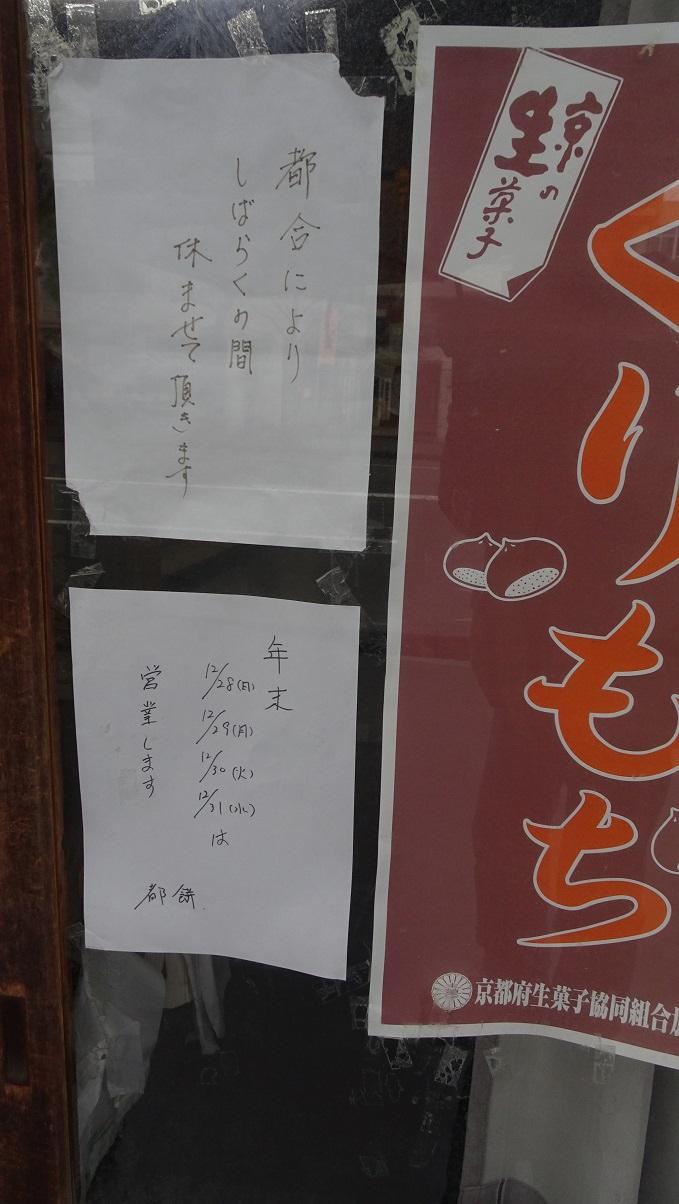 都合により
しばらくの間
休ませて頂きます
年末
12/28(日)
12/29(月)
12/30(火)
12/31(水)
は
営業します
都餅
京の
生菓子
くりもち
京都府生菓子協同組合